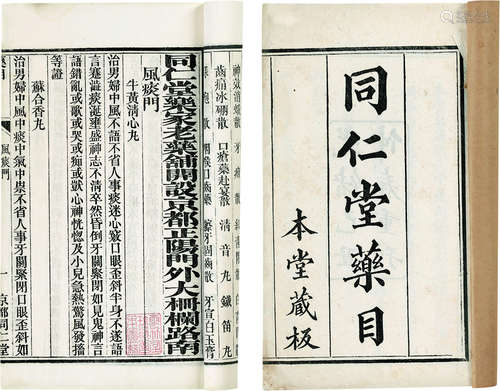 同仁堂藥目
本堂藏板
神效消蛾散
齒痛冰硼散 口瘡藥赴筵散 清音丸 鐵笛丸
同仁堂樂家老藥舖開設京都正陽門外大柵欄路南
風痰門
牛黃清心丸
治男婦中風不語不省人事痰迷心竅口眼歪斜半身不遂語
言蹇澁痰涎壅盛神志不清卒然昏倒牙關緊閉如見鬼神言
語錯亂或歌或哭或痴或獃心神恍惚及小兒急熱驚風發搐
等證
蘇合香丸
治男婦中風中痰中氣中祟不省人事牙關緊閉口眼歪斜如
藥目
風痰門
一
京都同仁堂